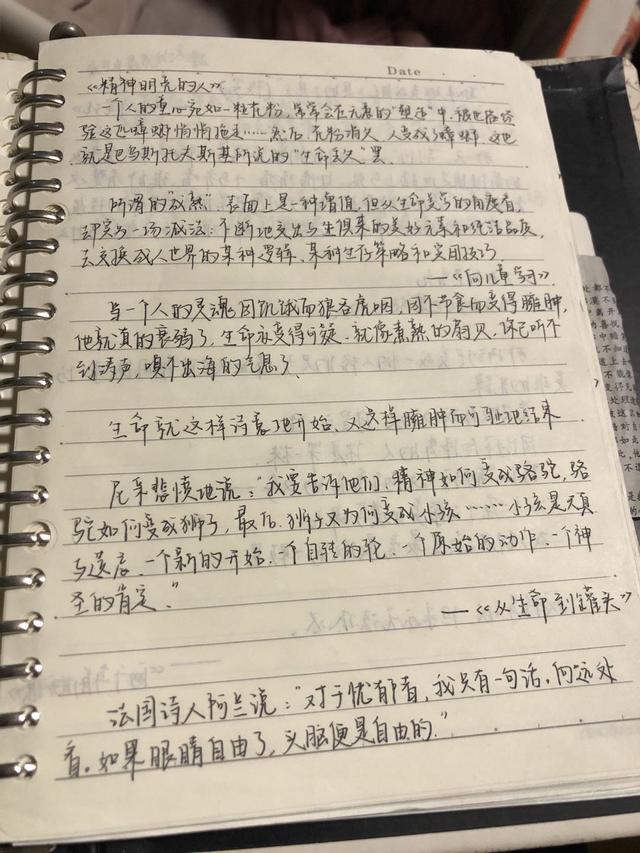 Date
《精神明亮的人》
一个人的童心宛如一粒花粉，常常会在无意的"塑造"中，被世故经
验这匹蟑螂悄悄拖走……然后，花粉消失，人变成了蟑螂。这也
就是巴乌斯托夫斯基所说的"生命丢失"罢。
所谓的"成熟"，表面上是一种增值，但从生命美学的角度看，
却实为一场减法：不断地交出与生俱来的美好元素和纯洁品质，
去交换成人世界的某种逻辑、某种生存策略和实用技巧
——《向儿童学习》
当一个人的灵魂因饥饿而狼吞虎咽，因不节食而变得臃肿，
他就真的衰弱了，生命亦变得可疑，就像煮熟的扇贝，你已听不
到涛声，嗅不出海的气息了
生命就这样诗意地开始，又这样臃肿而可耻地结束
尼采悲愤地说："我要告诉他们，精神如何变成骆驼，骆
驼如何变成狮子，最后，狮子又为何变成小孩……小孩是天真
与遗忘，一个新的开始，一个自转的轮，一个原始的动作，一个神
圣的肯定。"
——《从生命到罐头》
法国诗人阿兰说："对于忧郁者，我只有一句话，向远处
看。如果眼睛自由了，头脑便是自由的."